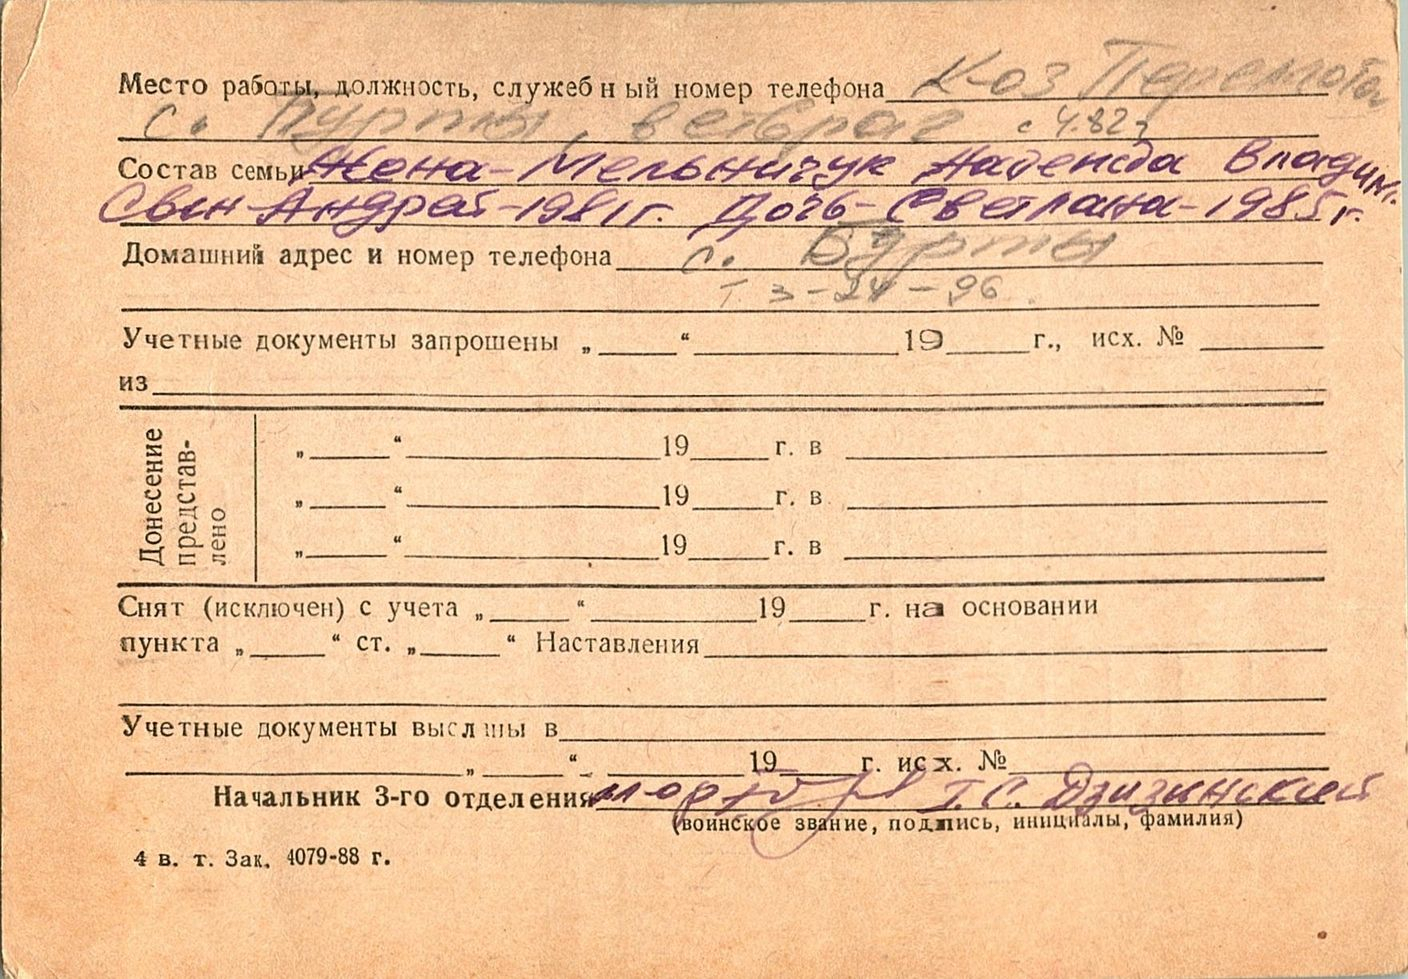 Место работы, должность, служебный номер телефона К-оз Перемога
с. Бурты, ветврач с 4.82 г
Состав семьи Жена - Мельничук Надежда Владим.
Сын Андрей - 1981 г. Дочь - Светлана - 1985 г.
Домашний адрес и номер телефона с. Бурты
т 3-24-96.
Учетные документы запрошены „ “ 19 г., исх. №
из
Донесение представ-лено
„ “ 19 г. в
„ “ 19 г. в
„ “ 19 г. в
Снят (исключен) с учета „ “ 19 г. на основании
пункта „ “ ст. „ “ Наставления
Учетные документы высланы в
„ “ 19 г. исх. №
Начальник 3-го отделения майор Т. С. Дзизинский
(воинское звание, подпись, инициалы, фамилия)
4 в. т. Зак. 4079-88 г.